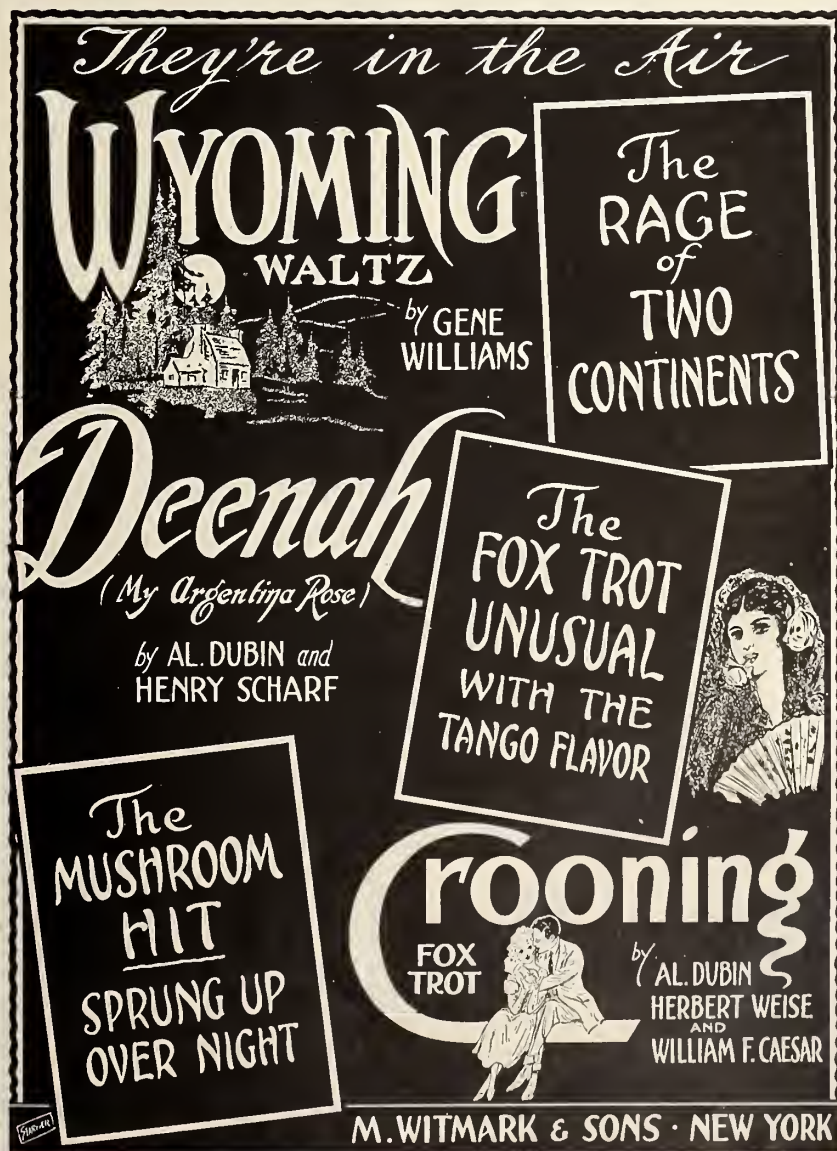 They're in the Air
WYOMING
WALTZ
by GENE
WILLIAMS
The
RAGE
of
TWO
CONTINENTS
Deenah
(My Argentina Rose)
by AL. DUBIN and
HENRY SCHARF
The
FOX TROT
UNUSUAL
WITH THE
TANGO FLAVOR
The
MUSHROOM
HIT
SPRUNG UP
OVER NIGHT
Crooning
FOX
TROT
by AL. DUBIN
HERBERT WEISE
AND
WILLIAM F. CAESAR
M. WITMARK & SONS · NEW YORK